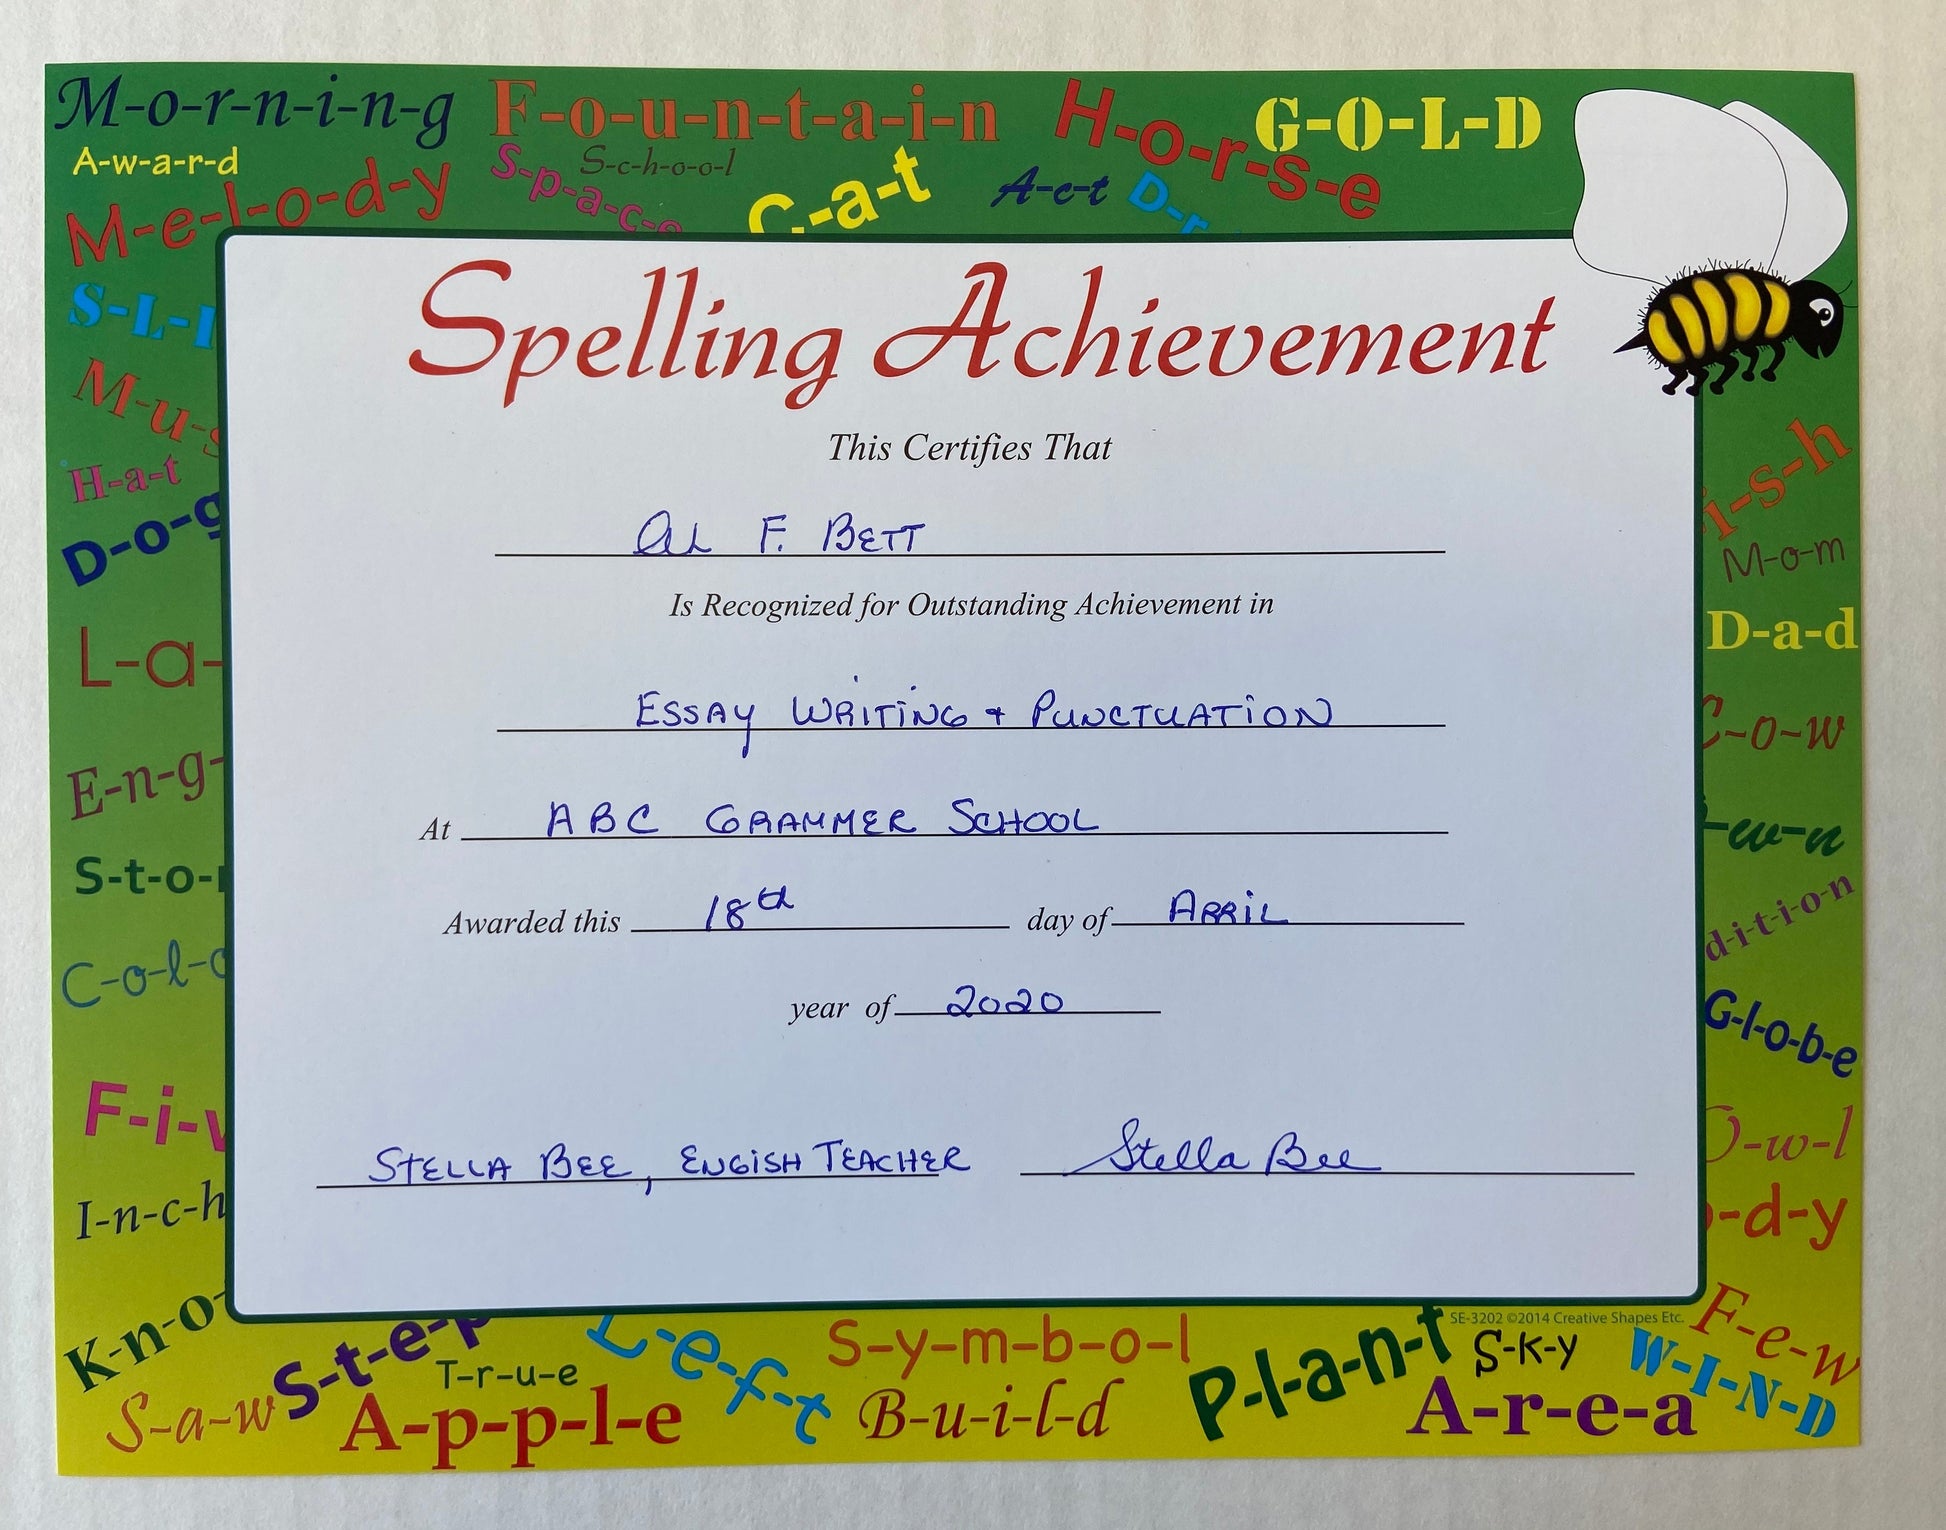 M-o-r-n-i-n-g F-o-u-n-t-a-i-n H-o-r-s-e G-O-L-D
A-w-a-r-d S-c-h-o-o-l
M-e-l-o-d-y S-p-a-c-e C-a-t A-c-t D-r
S-L-I
Spelling Achievement
M-u-s
This Certifies That
H-a-t
i-s-h
D-o-g
Al F. BETT
M-o-m
Is Recognized for Outstanding Achievement in
L-a-
D-a-d
ESSAY WRITING + PUNCTUATION
C-o-w
E-n-g-
At ABC GRAMMER SCHOOL
-w-n
S-t-o-r
Awarded this 18th day of APRIL
d-i-t-i-o-n
C-o-l-o
year of 2020
G-l-o-b-e
F-i-v
O-w-l
STELLA BEE, ENGISH TEACHER Stella Bee
I-n-c-h
-d-y
K-n-o-
SE-3202 ©2014 Creative Shapes Etc.
S-t-e-p L-e-f-t S-y-m-b-o-l P-l-a-n-t S-k-y F-e-w
T-r-u-e W-I-N-D
S-a-w A-p-p-l-e B-u-i-l-d A-r-e-a